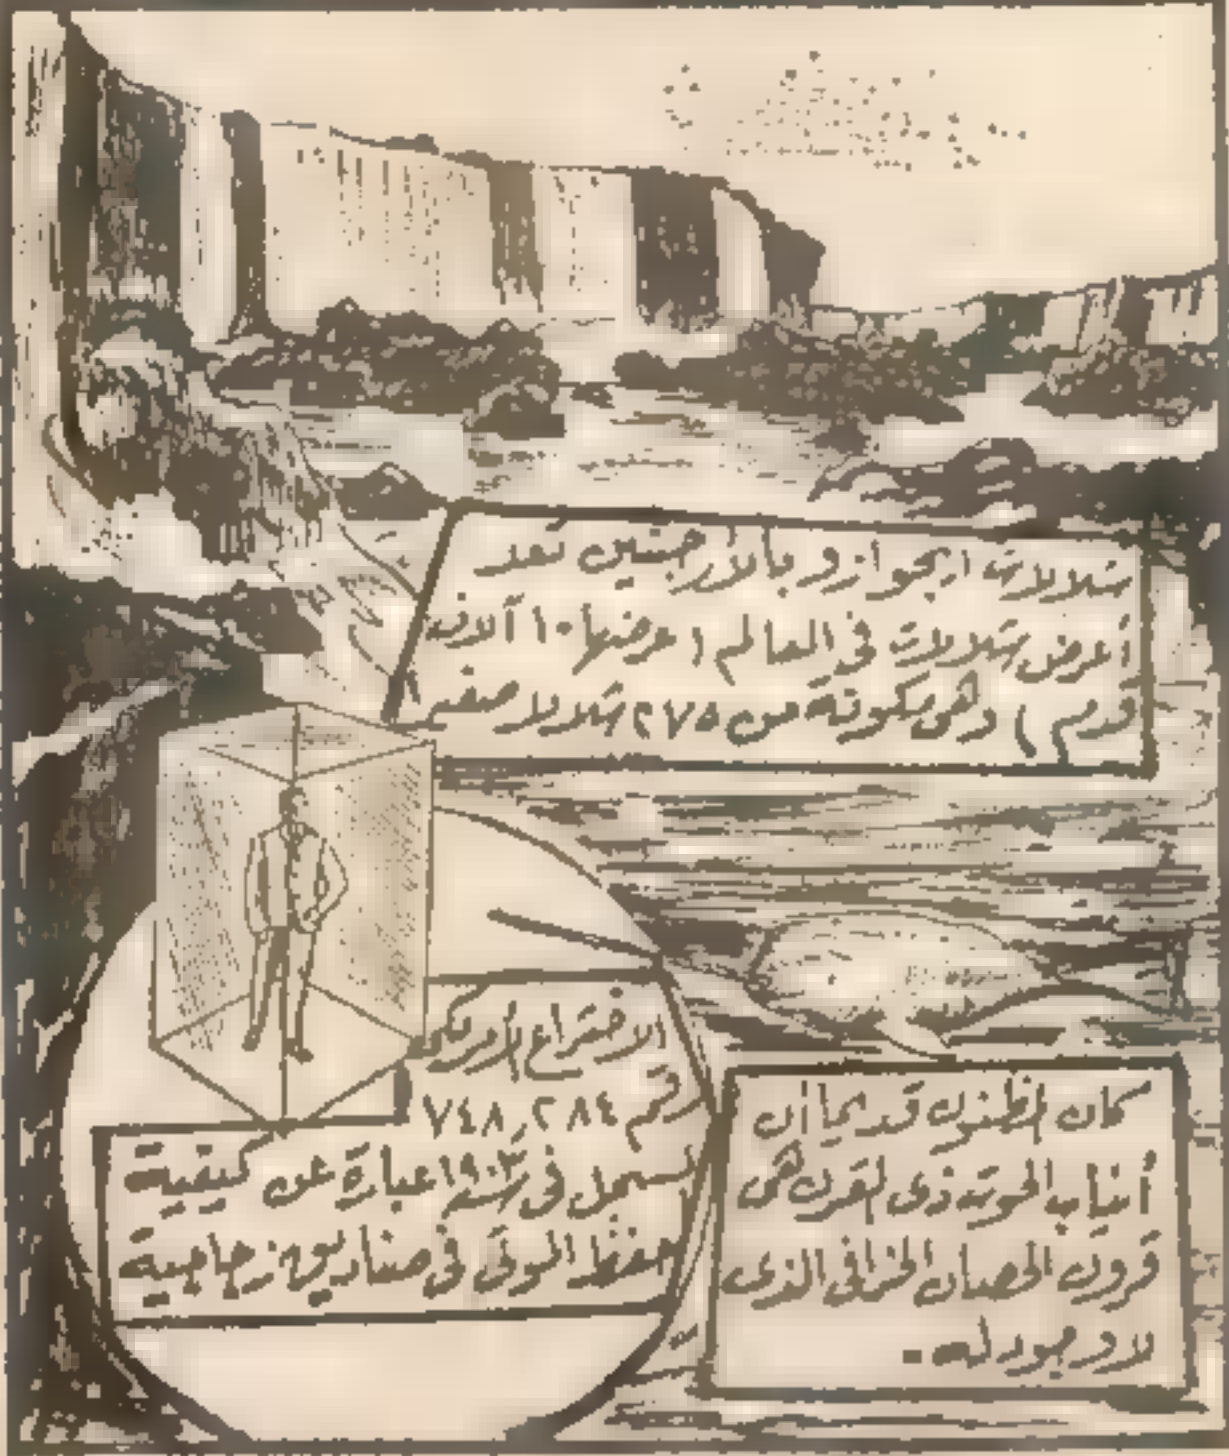 شلالات ايجوازو بالأرجنتين تعد
أعرض شلالات فى العالم ( عرضها ١٠ آلاف
قدم ) وهى مكونة من ٢٧٥ شلالا صغير
الاختراع الأمريكى
رقم ٧٤٨,٢٨٤
لسجل فى سنة ١٩٠٣ عبارة عن كيفية
حفظ الموتى فى صناديق زجاجية
كان المظنون قديما أن
أنياب الحوت ذى القرن هى
قرون الحصان الخرافى الذى
لا وجود له .